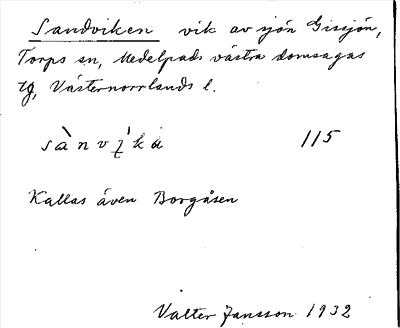 Sandviken vik av sjön Gissjön,
Torps sn, Medelpads västra domsagas
tg, Västernorrlands l.
sànvı̨́ka 115
Kallas även Borgåsen
Valter Jansson 1932